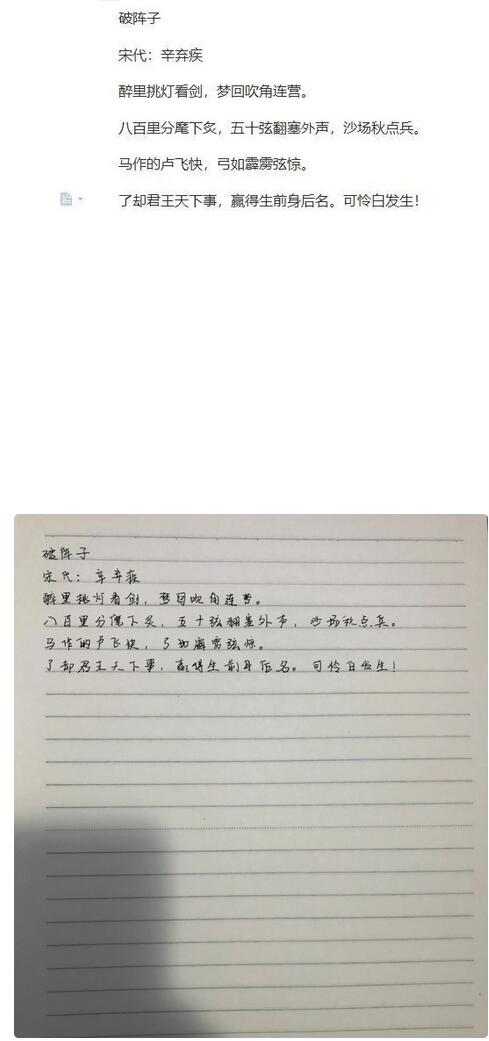 破阵子
宋代：辛弃疾
醉里挑灯看剑，梦回吹角连营。
八百里分麾下炙，五十弦翻塞外声，沙场秋点兵。
马作的卢飞快，弓如霹雳弦惊。
了却君王天下事，赢得生前身后名。可怜白发生！
破阵子
宋代：辛弃疾
醉里挑灯看剑，梦回吹角连营。
八百里分麾下炙，五十弦翻塞外声，沙场秋点兵。
马作的卢飞快，弓如霹雳弦惊。
了却君王天下事，赢得生前身后名。可怜白发生！